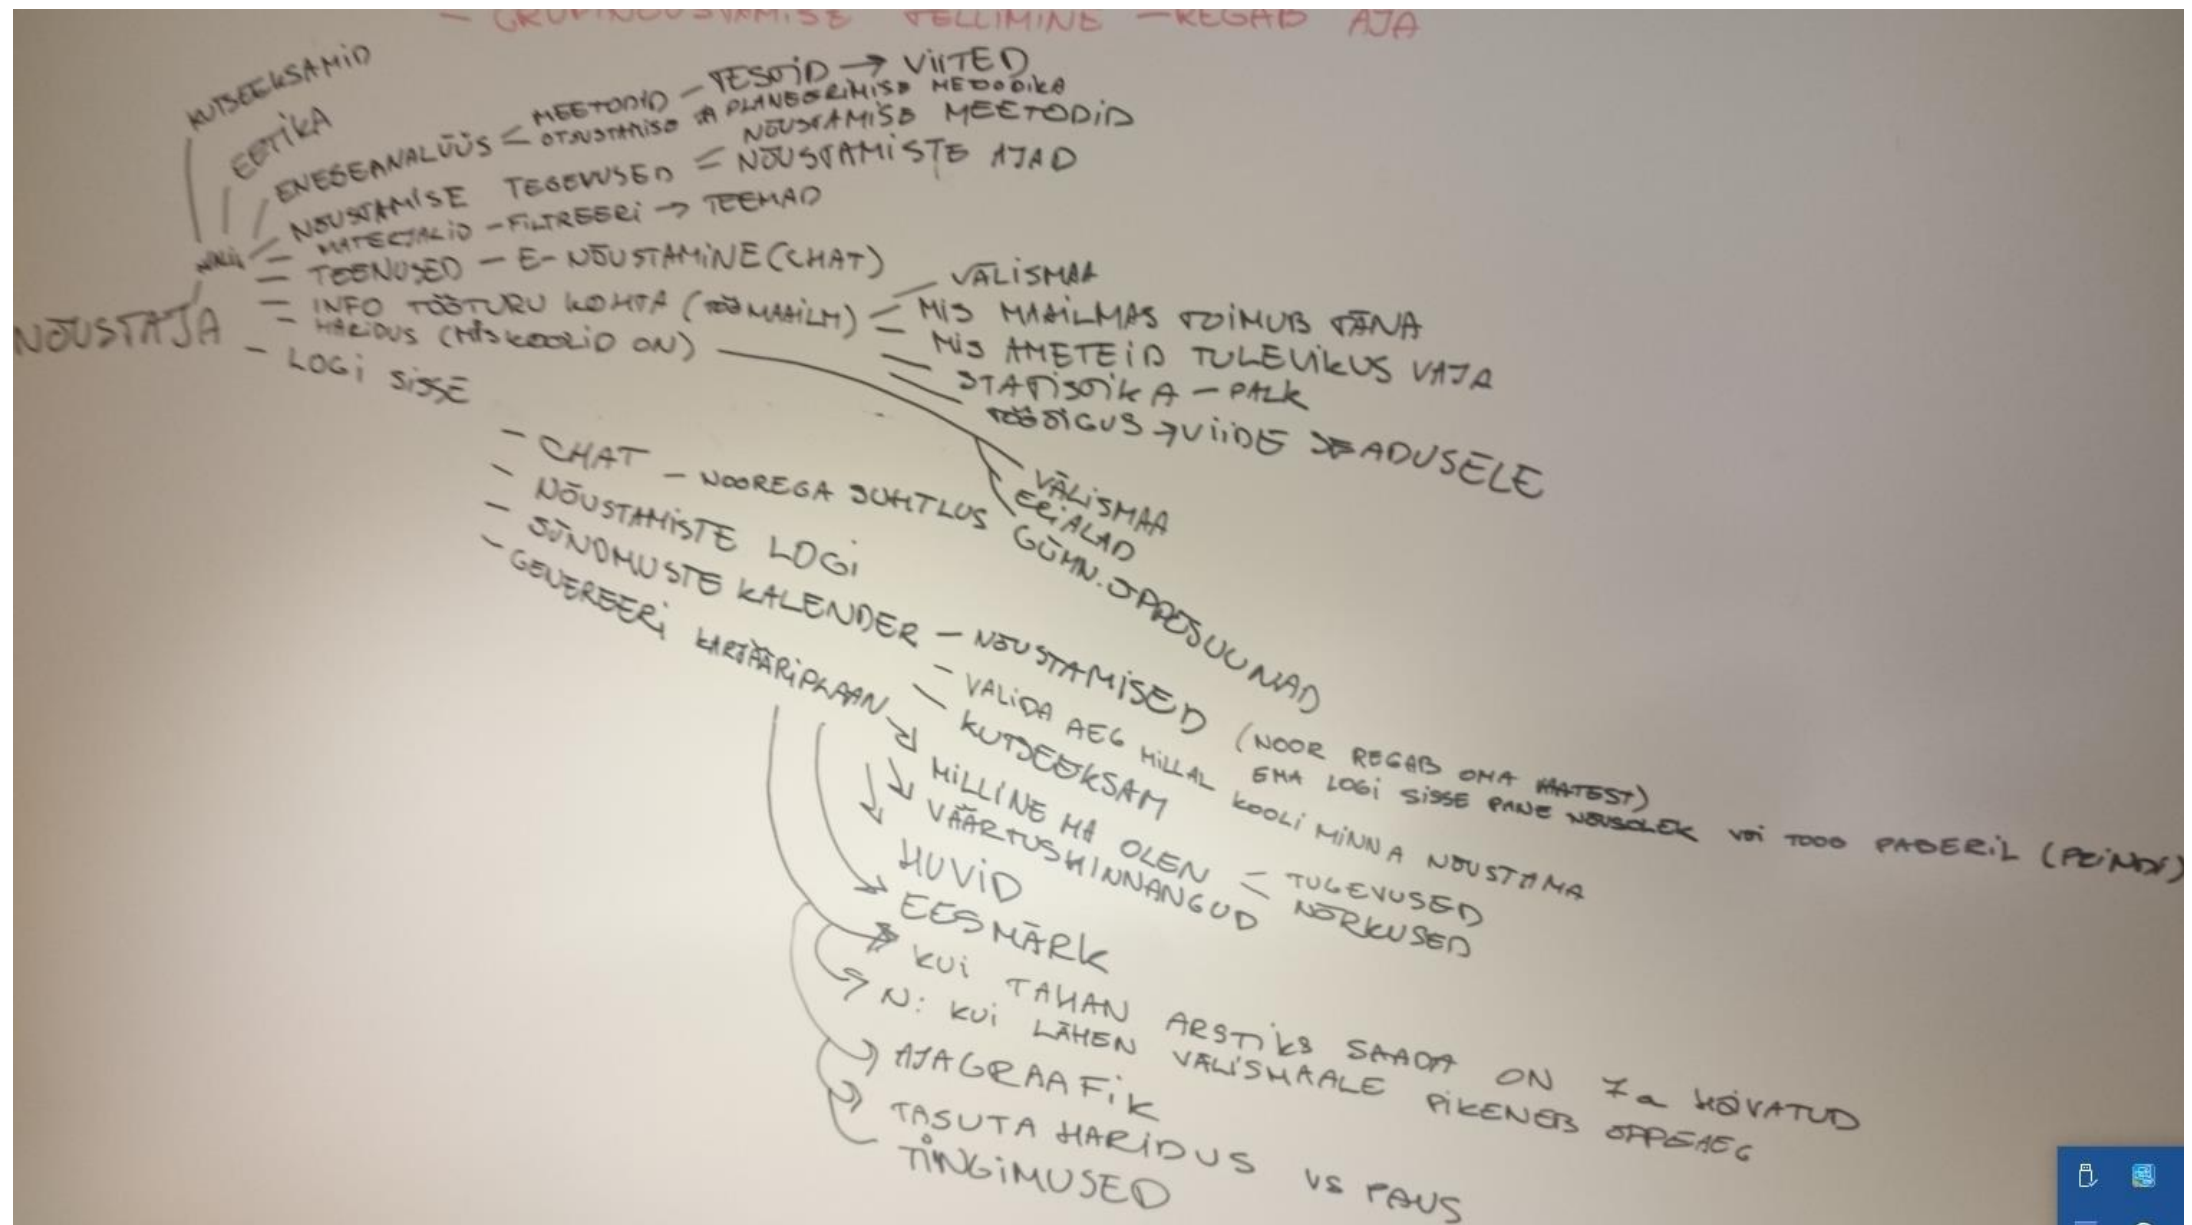 - GRUPINÕUSTAMISE TELLIMINE - REGAB AJA
KUTSEEKSAMID
EETIKA
ENESEANALÜÜS
MEETODID - TESTID → VIITED
OTSUSTAMISE JA PLANEERIMISE METOODIKA
NÕUSTAMISE TEGEVUSED
NÕUSTAMISE MEETODID
NÕUSTAMISTE AJAD
MATERJALID - FILTREERI → TEEMAD
TEENUSED - E-NÕUSTAMINE (CHAT)
INFO TÖÖTURU KOHTA (TÖÖMAAILM)
VÄLISMAA
MIS MAAILMAS TOIMUB TÄNA
MIS AMETEID TULEVIKUS VAJA
STATISTIKA - PALK
TÖÖÕIGUS → VIIDE SEADUSELE
HARIDUS (MIS KOOLID ON)
VÄLISMAA
ERIALAD
GÜMN. ÕPPESUUNAD
NÕUSTAJA
- LOGI SISSE
- CHAT - NOOREGA SUHTLUS
- NÕUSTAMISTE LOGI
- SÜNDMUSTE KALENDER - NÕUSTAMISED (NOOR REGAB OMA
EMA LOGI SISSE PANE NÕUSOLEK VÕI TOOD PABERIL (PRINDI)
- VALIDA AEG MILLAL KOOLI MINNA NÕUSTAMA
- KUTSEEKSAM
- GENEREERI KARJÄÄRIPLAAN
MILLINE MA OLEN
TUGEVUSED
NÕRKUSED
VÄÄRTUSHINNANGUD
HUVID
EESMÄRK
KUI TAHAN ARSTIKS SAADA ON 7a HÕIVATUD
N: KUI LÄHEN VÄLISMAALE PIKENEB ÕPPEAEG
AJAGRAAFIK
TASUTA HARIDUS VS
TINGIMUSED